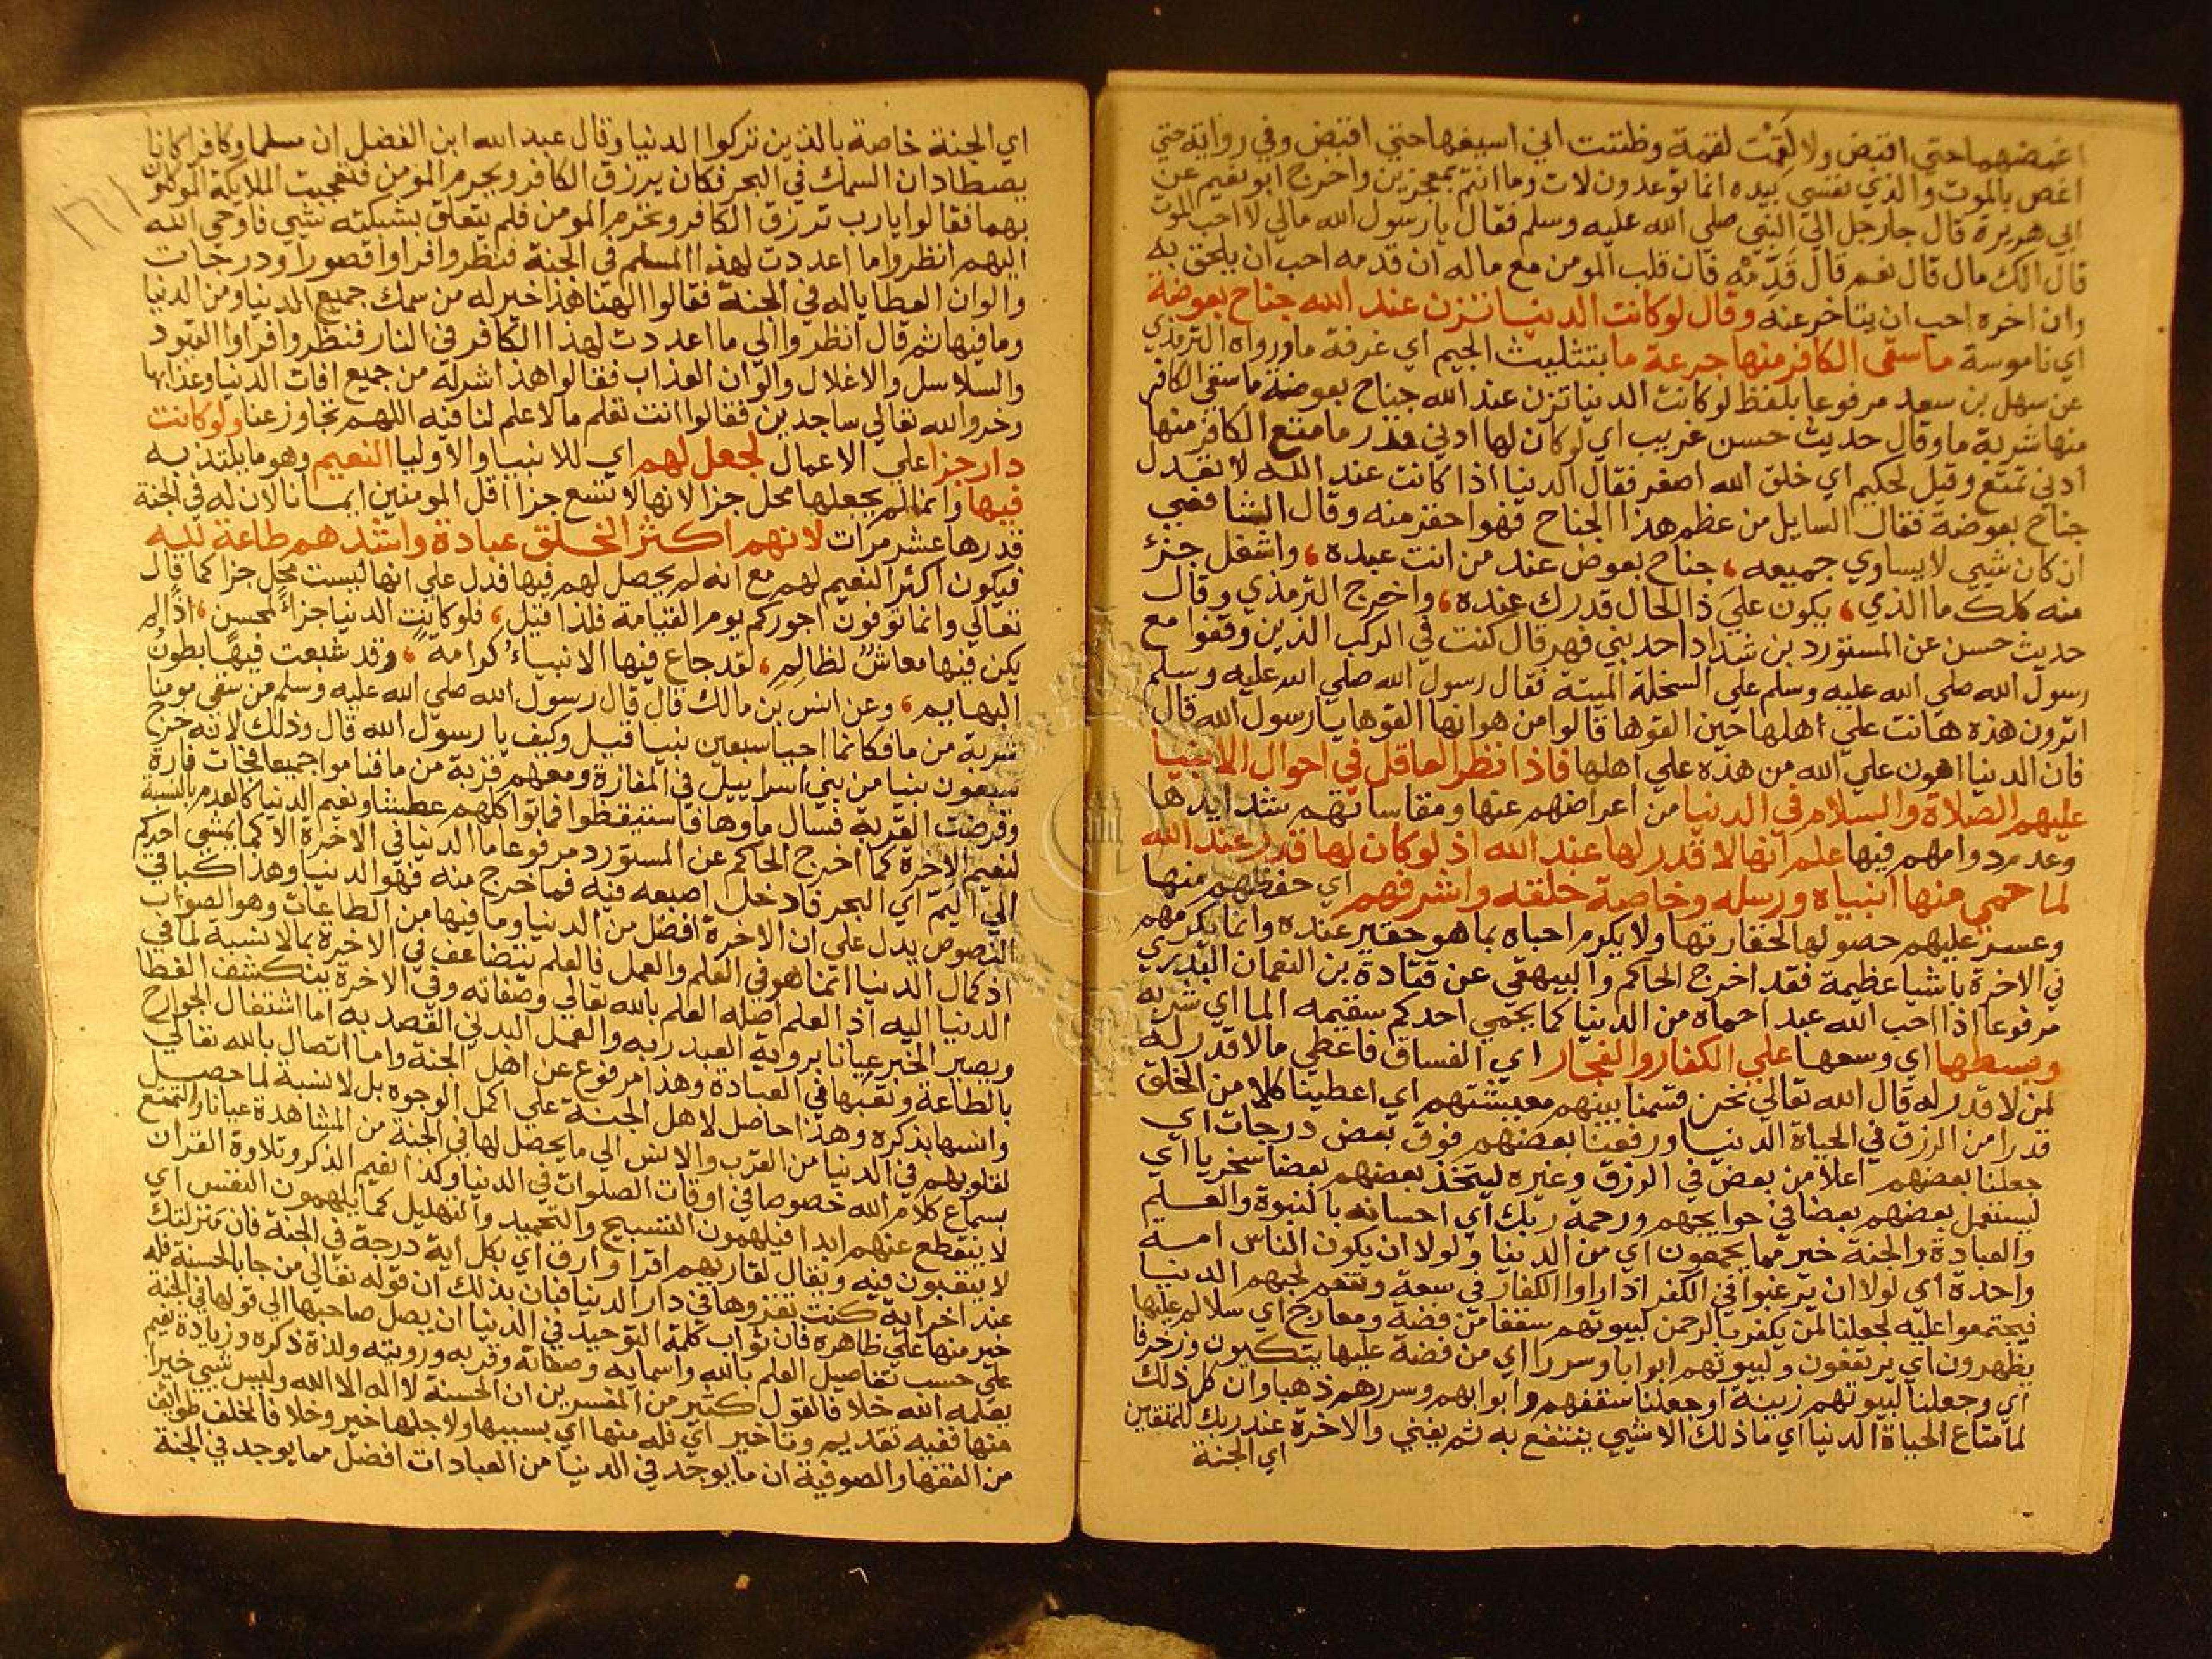 اغمضهما حتي اقتبض ولا لقمت لقمة وظننت اني اسيغها حتي اقتبض وفي رواية حتي
اغص بالموت والذي نفسي بيده انما توعدون لات وما انتم بمعجزين واخرج ابو نعيم عن
ابي هريرة قال جا رجل الي النبي صلي الله عليه وسلم فقال يا رسول الله مالي لا احب الموت
قال الك مال قال نعم قال قدمه فان قلب المومن مع ماله ان قدمه احب ان يلحق به
وان اخره احب ان يتاخر عنه وقال لو كانت الدنيا تزن عند الله جناح بعوضة
اي ناموسة ما سقي الكافر منها جرعة ما بتثليث الجيم اي غرفة ما ورواه الترمذي
عن سهل بن سعد مرفوعا بلفظ لو كانت الدنيا تزن عند الله جناح بعوضة ما سقي الكافر
منها شربة ما وقال حديث حسن غريب اي لو كان لها ادني قدر ما متع الكافر منها
ادني تمتع وقيل لحكيم اي خلق الله اصغر فقال الدنيا اذا كانت عند الله لا تعدل
جناح بعوضة فقال السايل من عظم هذا الجناح فهو احقر منه وقال الشافعي
ان كان شيي لا يساوي جميعه، جناح بعوض عند من انت عبده، واشغل جزء
منه كلك ما الذي، يكون علي ذا الحال قدرك عنده، واخرج الترمذي وقال
حديث حسن عن المستورد بن شداد احد بني فهر قال كنت في الركب الذين وقفوا مع
رسول الله صلي الله عليه وسلم علي السخلة الميتة فقال رسول الله صلي الله عليه وسلم
اترون هذه هانت علي اهلها حين القوها قالوا من هوانها القوها يا رسول الله قال
فان الدنيا اهون علي الله من هذه علي اهلها فاذا نظر العاقل في احوال الانبيا
عليهم الصلاة والسلام في الدنيا من اعراضهم عنها ومقاساتهم شدايدها
وعدم دوامهم فيها علم انها لا قدر لها عند الله اذ لو كان لها قدر عند الله
لما حمي منها انبياه ورسله وخاصة خلقه واشرفهم اي حفظهم منها
وعسر عليهم حصولها لحقارتها ولا يكرم احباه بما هو حقير عنده وانما يكرمهم
في الاخرة باشيا عظيمة فقد اخرج الحاكم والبيهقي عن قتادة بن النعمان البدري
مرفوعا اذا احب الله عبدا حماه من الدنيا كما يحمي احدكم سقيمه الما اي شربه
وبسطها اي وسعها علي الكفار والفجار اي الفساق فاعطي ما لا قدر له
لمن لا قدر له قال الله تعالي نحن قسمنا بينهم معيشتهم اي اعطينا كلا من الخلق
قدرا من الرزق في الحياة الدنيا ورفعنا بعضهم فوق بعض درجات اي
جعلنا بعضهم اعلا من بعض في الرزق وغيره ليتخذ بعضهم بعضا سخريا اي
ليستعمل بعضهم بعضا في حوايجهم ورحمة ربك اي احسانه بالنبوة والعلم
والعبادة والجنة خير مما يجمعون اي من الدنيا ولولا ان يكون الناس امة
واحدة اي لولا ان يرغبوا في الكفر اذا راوا الكفار في سعة وتنعم لحبهم الدنيا
فيجتمعوا عليه لجعلنا لمن يكفر بالرحمن لبيوتهم سقفا من فضة ومعارج اي سلالم عليها
يظهرون اي يرتفعون ولبيوتهم ابوابا وسررا اي من فضة عليها يتكيون وزخرفا
اي وجعلنا لبيوتهم زينة او جعلنا سقفهم وابوابهم وسررهم ذهبا وان كل ذلك
لما متاع الحياة الدنيا اي ما ذلك الا شيي ينتفع به ثم يفني والاخرة عند ربك للمتقين
اي الجنة
١٦١
اي الجنة خاصة بالذين تركوا الدنيا وقال عبد الله ابن الفضل ان مسلما وكافرا كانا
يصطادان السمك في البحر فكان يرزق الكافر ويحرم المومن فتعجبت الملايكة الموكلون
بهما فقالوا يا رب ترزق الكافر وتحرم المومن فلم يتعلق بشبكته شيي فاوحي الله
اليهم انظروا ما اعددت لهذا المسلم في الجنة فنظروا فراوا قصورا ودرجات
والوان العطايا له في الجنة فقالوا الهنا هذا خير له من سمك جميع الدنيا ومن الدنيا
وما فيها ثم قال انظروا الي ما اعددت لهذا الكافر في النار فنظروا فراوا القيود
والسلاسل والاغلال والوان العذاب فقالوا هذا شر له من جميع افات الدنيا وعذابها
وخروا لله تعالي ساجدين فقالوا انت تعلم ما لا علم لنا فيه اللهم تجاوز عنا ولو كانت
دار جزا علي الاعمال لجعل لهم اي للانبيا والاوليا النعيم وهو ما يلتذ به
فيها وانما لم يجعلها محل جزا لانها لا تسع جزا اقل المومنين ايمانا لان له في الجنة
قدرها عشر مرات لانهم اكثر الخلق عبادة واشدهم طاعة لله
فيكون اكثر النعيم لهم مع انه لم يحصل لهم فيها فدل علي انها ليست محل جزا كما قال
تعالي وانما توفون اجوركم يوم القيامة فلذا قيل، فلو كانت الدنيا جزاء لمحسن، اذا لم
يكن فيها معاش لظالم، لقد جاع فيها الانبياء كرامة، وقد شبعت فيها بطون
البهايم، وعن انس بن مالك قال قال رسول الله صلي الله عليه وسلم من سقي مومنا
شربة من ما فكانما احيا سبعين نبيا قيل وكيف يا رسول الله قال وذلك لانه خرج
سبعون نبيا من بني اسراييل في المفازة ومعهم قربة من ما فناموا جميعا فجات فارة
وقرضت القربة فسال ماوها فاستيقظوا فماتوا كلهم عطشا ونعيم الدنيا كالعدم بالنسبة
لنعيم الاخرة كما اخرج الحاكم عن المستورد مرفوعا ما الدنيا في الاخرة الا كما يمشي احدكم
الي اليم اي البحر فادخل اصبعه فيه فما خرج منه فهو الدنيا وهذا كباقي
النصوص يدل علي ان الاخرة افضل من الدنيا وما فيها من الطاعات وهو الصواب
اذ كمال الدنيا انما هو في العلم والعمل فالعلم يتضاعف في الاخرة بما لا نسبة لما في
الدنيا اليه اذ العلم اصله العلم بالله تعالي وصفاته وفي الاخرة ينكشف الغطا
ويصير الخبر عيانا بروية العبد ربه والعمل البدني القصد به اما اشتغال الجوارح
بالطاعة وتعبها في العبادة وهذا مرفوع عن اهل الجنة واما اتصال بالله تعالي
وانسها بذكره وهذا حاصل لاهل الجنة علي اكمل الوجوه بل لا نسبة لما حصل
لقلوبهم في الدنيا من القرب والانس الي ما يحصل لها في الجنة من المشاهدة عيانا والتمتع
بسماع كلام الله خصوصا في اوقات الصلوات في الدنيا وكذا نعيم الذكر وتلاوة القران
لا ينقطع عنهم ابدا فيلهمون التسبيح والتحميد والتهليل كما يلهمون النفس اي
لا يتعبون فيه ويقال لقاريهم اقرا وارق اي بكل اية درجة في الجنة فان منزلتك
عند اخر اية كنت تقروها في دار الدنيا فبان بذلك ان قوله تعالي من جا بالحسنة فله
خير منها علي ظاهره فان ثواب كلمة التوحيد في الدنيا ان يصل صاحبها الي قولها في الجنة
علي حسب تفاصيل العلم بالله واسمايه وصفاته وقربه ورويته ولذة ذكره وزيادة نعيم
يعلمه الله خلافا لقول كثير من المفسرين ان الحسنة لا اله الا الله وليس شيي خيرا
منها ففيه تقديم وتاخير اي فله منها اي بسببها ولاجلها خير وخلافا لخلف طوائف
من الفقها والصوفية ان ما يوجد في الدنيا من العبادات افضل مما يوجد في الجنة